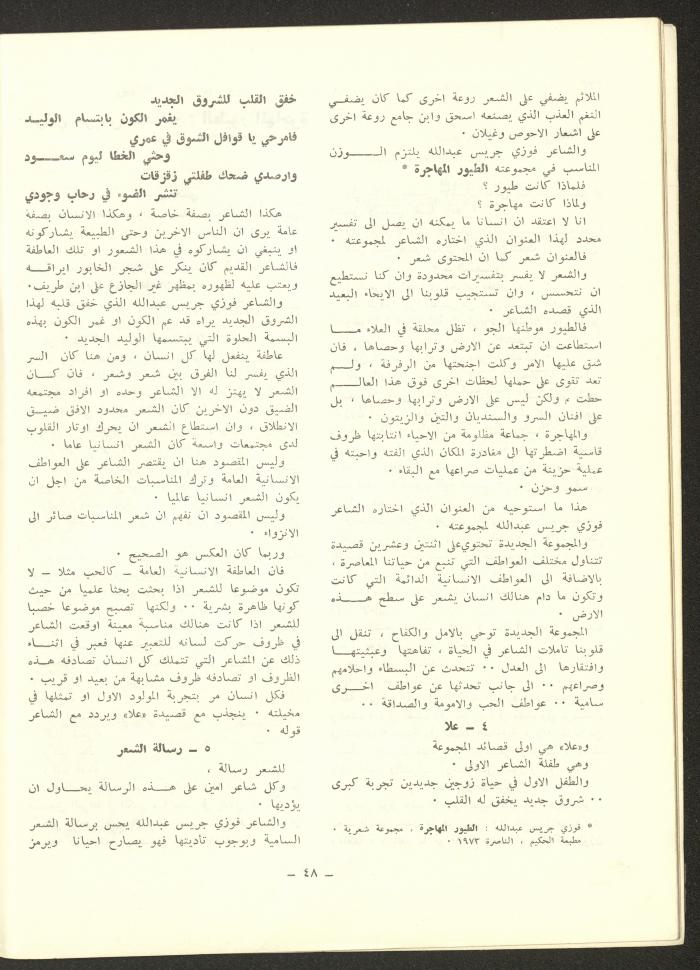 الملائم يضفي على الشعر روعة اخرى كما كان يضفي
النغم العذب الذي يصنعه اسحق وابن جامع روعة اخرى
على اشعار الاحوص وغيلان ·
والشاعر فوزي جريس عبدالله يلتزم الوزن
المناسب في مجموعته الطيور المهاجرة *
فلماذا كانت طيور ؟
ولماذا كانت مهاجرة ؟
انا لا اعتقد ان انسانا ما يمكنه ان يصل الى تفسير
محدد لهذا العنوان الذي اختاره الشاعر لمجموعته ·
فالعنوان شعر كما ان المحتوى شعر ·
والشعر لا يفسر بتفسيرات محدودة وان كنا نستطيع
ان نتحسس ، وان تستجيب قلوبنا الى الايحاء البعيد
الذي قصده الشاعر ·
فالطيور موطنها الجو ، تظل محلقة في العلاء ما
استطاعت ان تبتعد عن الارض وترابها وحصاها ، فان
شق عليها الامر وكلت اجنحتها من الرفرفة ، ولم
تعد تقوى على حملها لحظات اخرى فوق هذا العالم
حطت ، ولكن ليس على الارض وترابها وحصاها ، بل
على افنان السرو والسنديان والتين والزيتون ·
والمهاجرة ، جماعة مظلومة من الاحياء انتابتها ظروف
قاسية اضطرتها الى مغادرة المكان الذي الفته واحبته في
عملية حزينة من عمليات صراعها مع البقاء ·
سمو وحزن ·
هذا ما استوحيه من العنوان الذي اختاره الشاعر
فوزي جريس عبدالله لمجموعته ·
والمجموعة الجديدة تحتوي على اثنتين وعشرين قصيدة
تتناول مختلف العواطف التي تنبع من حياتنا المعاصرة ،
بالاضافة الى العواطف الانسانية الدائمة التي كانت
وتكون ما دام هنالك انسان يشعر على سطح هذه
الارض ·
المجموعة الجديدة توحي بالامل والكفاح ، تنقل الى
قلوبنا تاملات الشاعر في الحياة ، تفاهتها وعبثيتها
وافتقارها الى العدل ·· تتحدث عن البسطاء واحلامهم
وصراعهم ·· الى جانب تحدثها عن عواطف اخرى
سامية ·· عواطف الحب والامومة والصداقة ··
٤ ــ علا
و«علا» هي اولى قصائد المجموعة
وهي طفلة الشاعر الاولى ·
والطفل الاول في حياة زوجين جديدين تجربة كبرى
·· شروق جديد يخفق له القلب ·
* فوزي جريس عبدالله : الطيور المهاجرة ، مجموعة شعرية ·
مطبعة الحكيم ، الناصرة ١٩٧٣ ·
خفق القلب للشروق الجديد
يغمر الكون بابتسام الوليد
فامرحي يا قوافل الشوق في عمري
وحثي الخطا ليوم سعود
وارصدي ضحك طفلتي زقزقات
تنشر الضوء في رحاب وجودي
هكذا الشاعر بصفة خاصة ، وهكذا الانسان بصفة
عامة يرى ان الناس الاخرين وحتى الطبيعة يشاركونه
او ينبغي ان يشاركوه في هذا الشعور او تلك العاطفة
فالشاعر القديم كان ينكر على شجر الخابور ايراقه
ويعتب عليه لظهوره بمظهر غير الجازع على ابن طريف·
والشاعر فوزي جريس عبدالله الذي خفق قلبه لهذا
الشروق الجديد يراه قد عم الكون او غمر الكون بهذه
البسمة الحلوة التي يبتسمها الوليد الجديد ·
عاطفة ينفعل لها كل انسان ، ومن هنا كان السر
الذي يفسر لنا الفرق بين شعر وشعر ، فان كان
الشعر لا يهتز له الا الشاعر وحده او افراد مجتمعه
الضيق دون الاخرين كان الشعر محدود الافق ضيق
الانطلاق ، وان استطاع الشعر ان يحرك اوتار القلوب
لدى مجتمعات واسعة كان الشعر انسانيا عاما ·
وليس المقصود هنا ان يقتصر الشاعر على العواطف
الانسانية العامة وترك المناسبات الخاصة من اجل ان
يكون الشعر انسانيا عالميا ·
وليس المقصود ان نفهم ان شعر المناسبات صائر الى
الانزواء ·
وربما كان العكس هو الصحيح ·
فان العاطفة الانسانية العامة ــ كالحب مثلا ــ لا
تكون موضوعا للشعر اذا بحثت بحثا علميا من حيث
كونها ظاهرة بشرية ·· ولكنها تصبح موضوعا خصبا
للشعر اذا كانت هنالك مناسبة معينة اوقعت الشاعر
في ظروف حركت لسانه للتعبير عنها فعبر في اثناء
ذلك عن المشاعر التي تتملك كل انسان تصادفه هذه
الظروف او تصادفه ظروف مشابهة من بعيد او قريب ·
فكل انسان مر بتجربة المولود الاول او تمثلها في
مخيلته · ينجذب مع قصيدة «علا» ويردد مع الشاعر
قوله ·
٥ ــ رسالة الشعر
للشعر رسالة ،
وكل شاعر امين على هذه الرسالة يحاول ان
يؤديها ·
والشاعر فوزي جريس عبدالله يحس برسالة الشعر
السامية وبوجوب تأديتها فهو يصارح احيانا ويرمز
ــ ٤٨ ــ